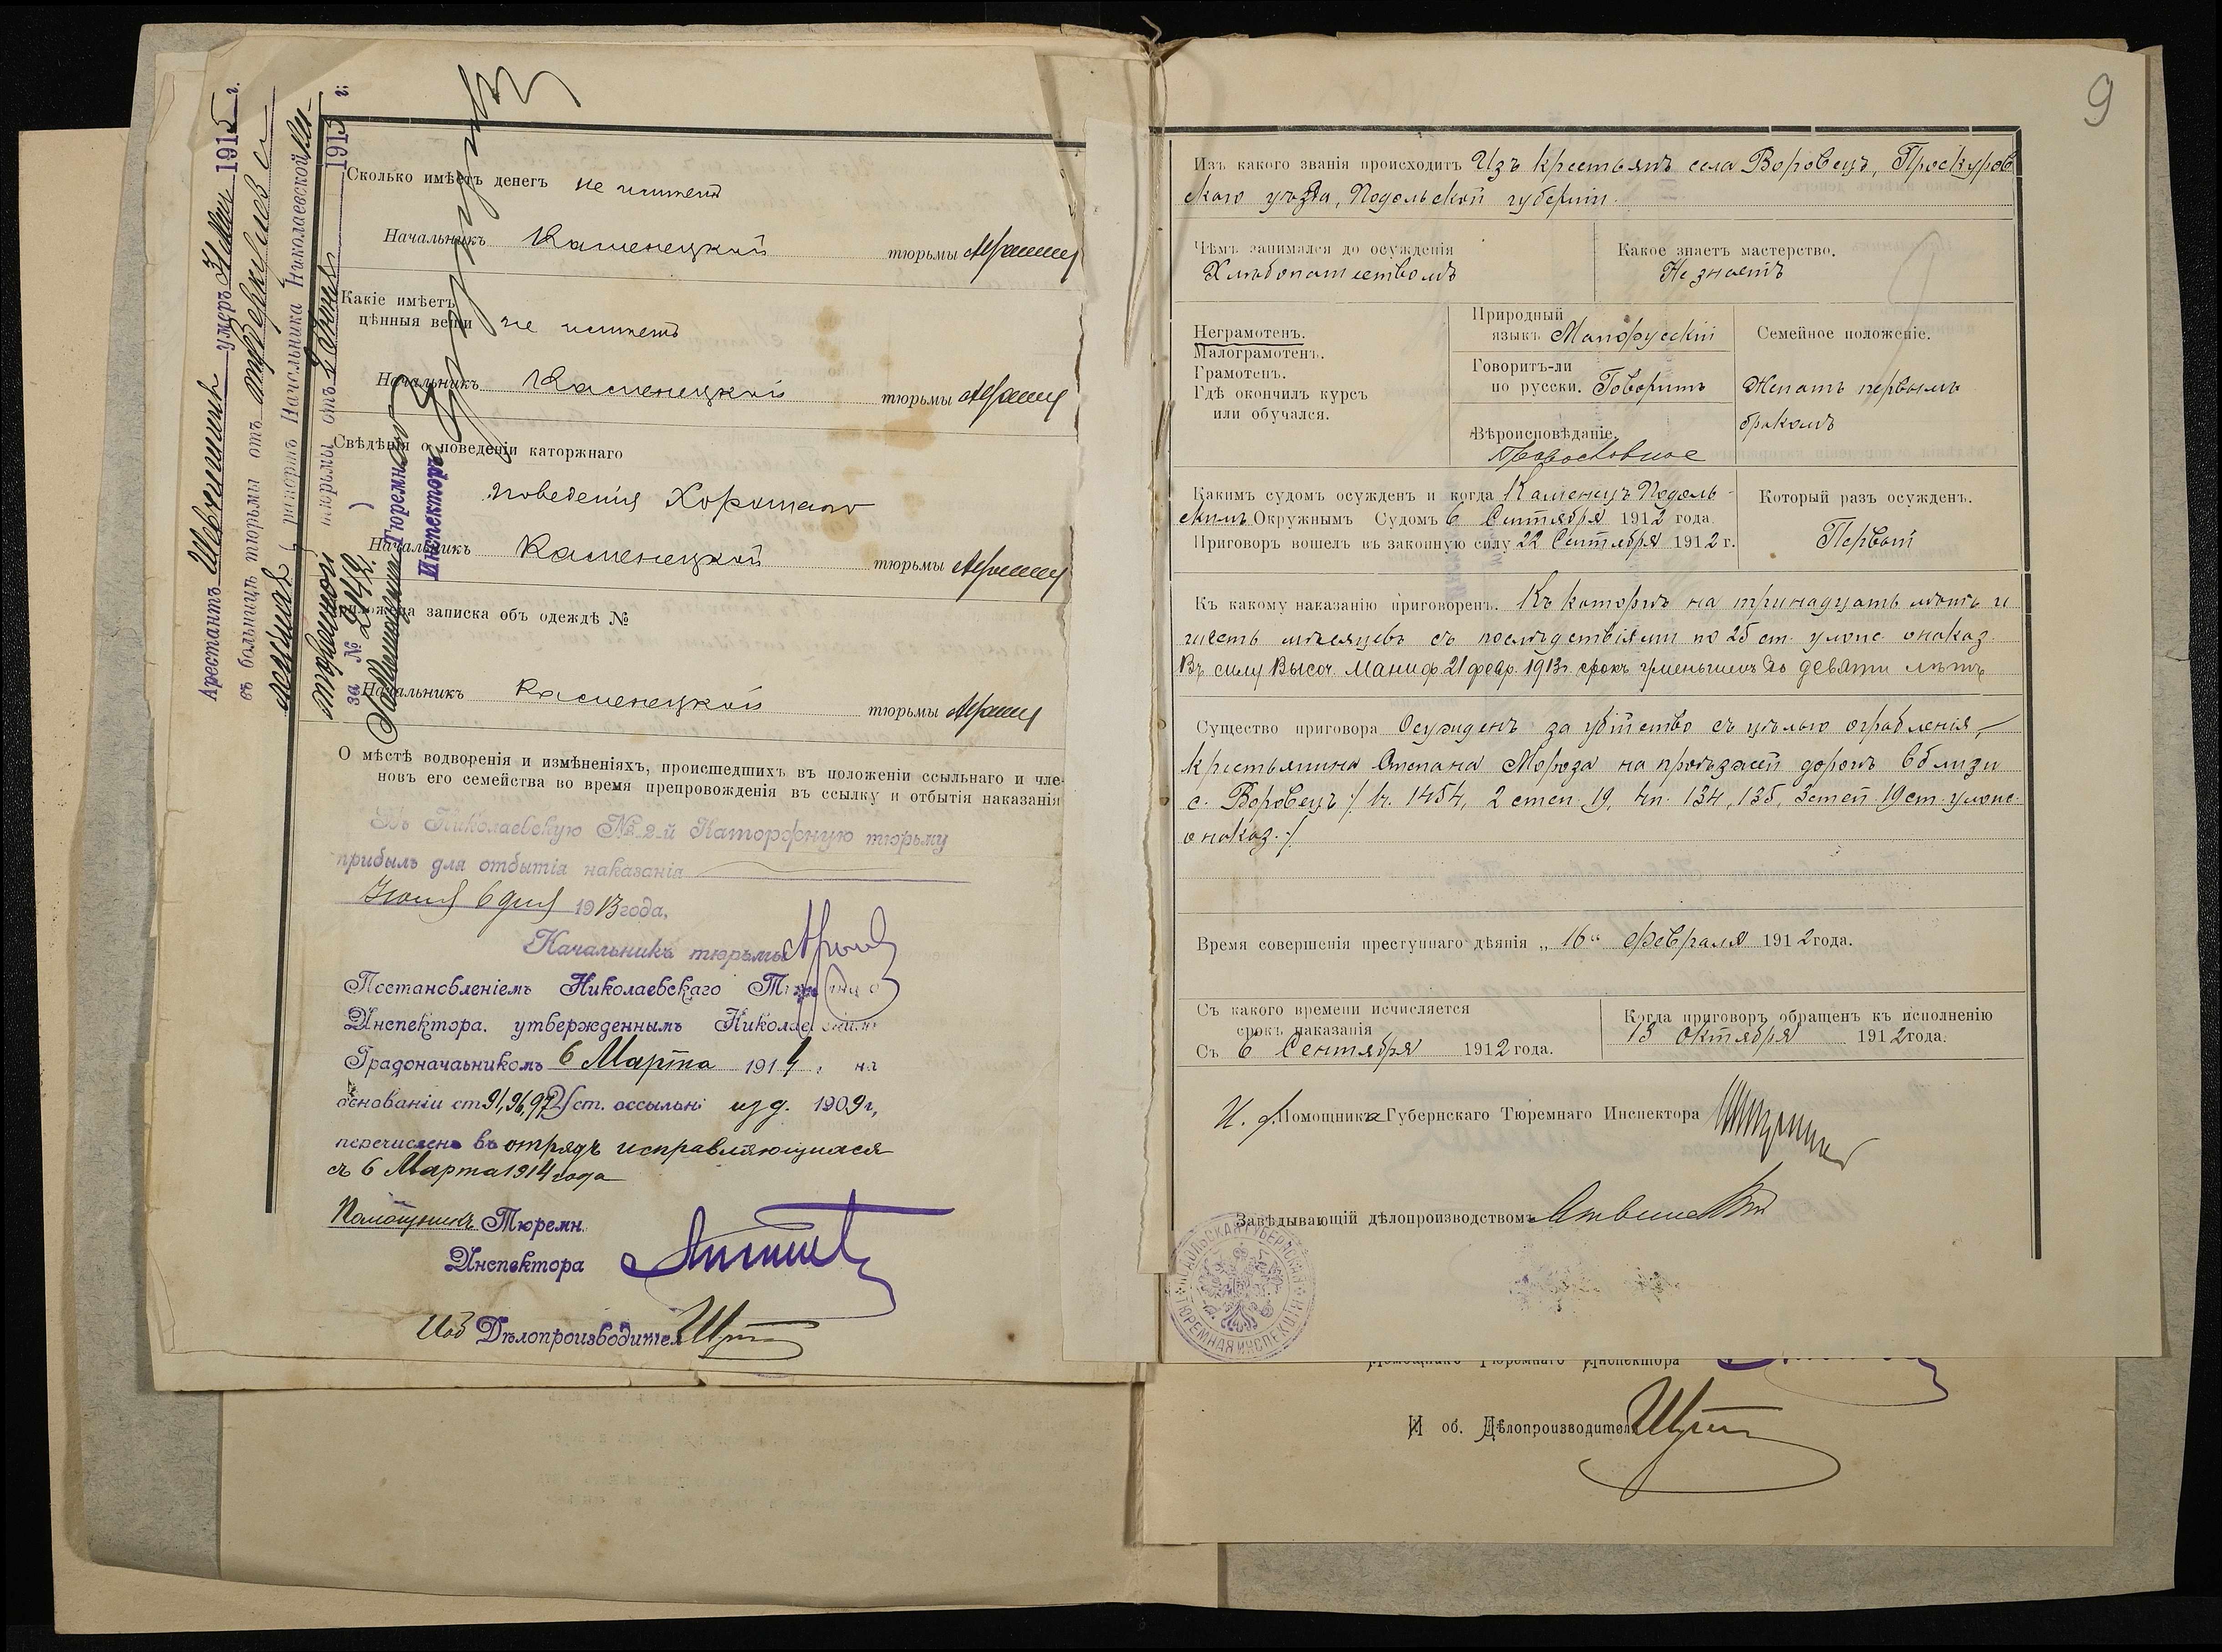 Сколько имѣетъ денегъ не имѣетъ
Начальникъ Каменецкой тюрьмы
Какіе имѣетъ
цѣнныя вещи не имѣетъ
Начальникъ Каменецкой тюрьмы
Свѣдѣнія о поведеніи каторжнаго
поведенія хорошаго
Начальникъ Каменецкой тюрьмы
Приложена записка объ одеждѣ №
Начальникъ Каменецкой тюрьмы
О мѣстѣ водворенія и измѣненіяхъ, происшедшихъ въ положеніи ссыльнаго и чле-
новъ его семейства во время препровожденія въ ссылку и отбытія наказанія
Въ Николаевскую № 2-й Каторжную тюрьму
прибылъ для отбытія наказанія
6 дня 1913 года,
Начальникъ тюрьмы
Постановленіемъ Николаевскаго
Инспектора. утвержденнымъ
Градоначаьникомъ 6 Марта 1914 г. на
основаніи ст 91, 96, 97 Уст. оссыльн изд. 1909 г,
перечисленъ въ отрядъ исправляющихся
съ 6 Марта 1914 года
Помощникъ Тюремн.
Инспектора
Иоб Дѣлопроизводител
Арестантъ умеръ 1915 г.
въ больницѣ тюрьмы отъ туберкулеза
легкихъ ( рапортъ Начальника Николаевской
каторжной тюрьмы отъ 1915 г.
за № )
Тюремн
Инспекторъ
9
Изъ какого званія происходитъ Изъ крестьянъ села Воровецъ, Проскуров
скаго уѣзда, Подольской губерніи.
Чѣмъ занимался до осужденія
Хлѣбопашествомъ
Какое знаетъ мастерство.
Не знаетъ
Неграмотенъ.
Малограмотенъ.
Грамотенъ.
Гдѣ окончилъ курсъ
или обучался.
Природный
языкъ Малорусскій
Говоритъ-ли
по русски. Говоритъ
Вѣроисповѣданіе.
Православное
Семейное положеніе.
Женатъ первымъ
бракомъ
Какимъ судомъ осужденъ и когда Каменецъ Подоль-
скимъ Окружнымъ Судомъ 6 Сентября 1912 года.
Приговоръ вошелъ въ законную силу 22 Сентября 1912 г.
Который разъ осужденъ.
Первый
Къ какому наказанію приговоренъ. Къ каторгѣ на тринадцать лѣтъ и
шесть мѣсяцевъ съ послѣдствіями по 25 ст. улож. о наказ.
Въ силу Высоч. Маниф. 21 февр. 1913 г. срокъ уменьшенъ до девяти лѣтъ
Существо приговора Осужденъ за убійство съ цѣлью ограбленія,
крестьянина Степана Мороза на проѣзжей дорогѣ вблизи
с. Воровецъ /ч. 1454, 2 степ. 19, 4 п. 134, 135, 3 степ. 19 ст. улож.
о наказ./
Время совершенія преступнаго дѣянія „ 16 “ февраля 1912 года.
Съ какого времени исчисляется
срокъ наказанія
Съ 6 Сентября 1912 года.
Когда приговоръ обращенъ къ исполненію
13 Октября 1912 года.
И. ф. Помощника Губернскаго Тюремнаго Инспектора
Завѣдывающій дѣлопроизводствомъ
ПОДОЛЬСКАЯ ГУБЕРНСКАЯ ТЮРЕМНАЯ ИНСПЕКЦІЯ
Помощникъ Тюремнаго Инспектора
И об. Дѣлопроизводителя